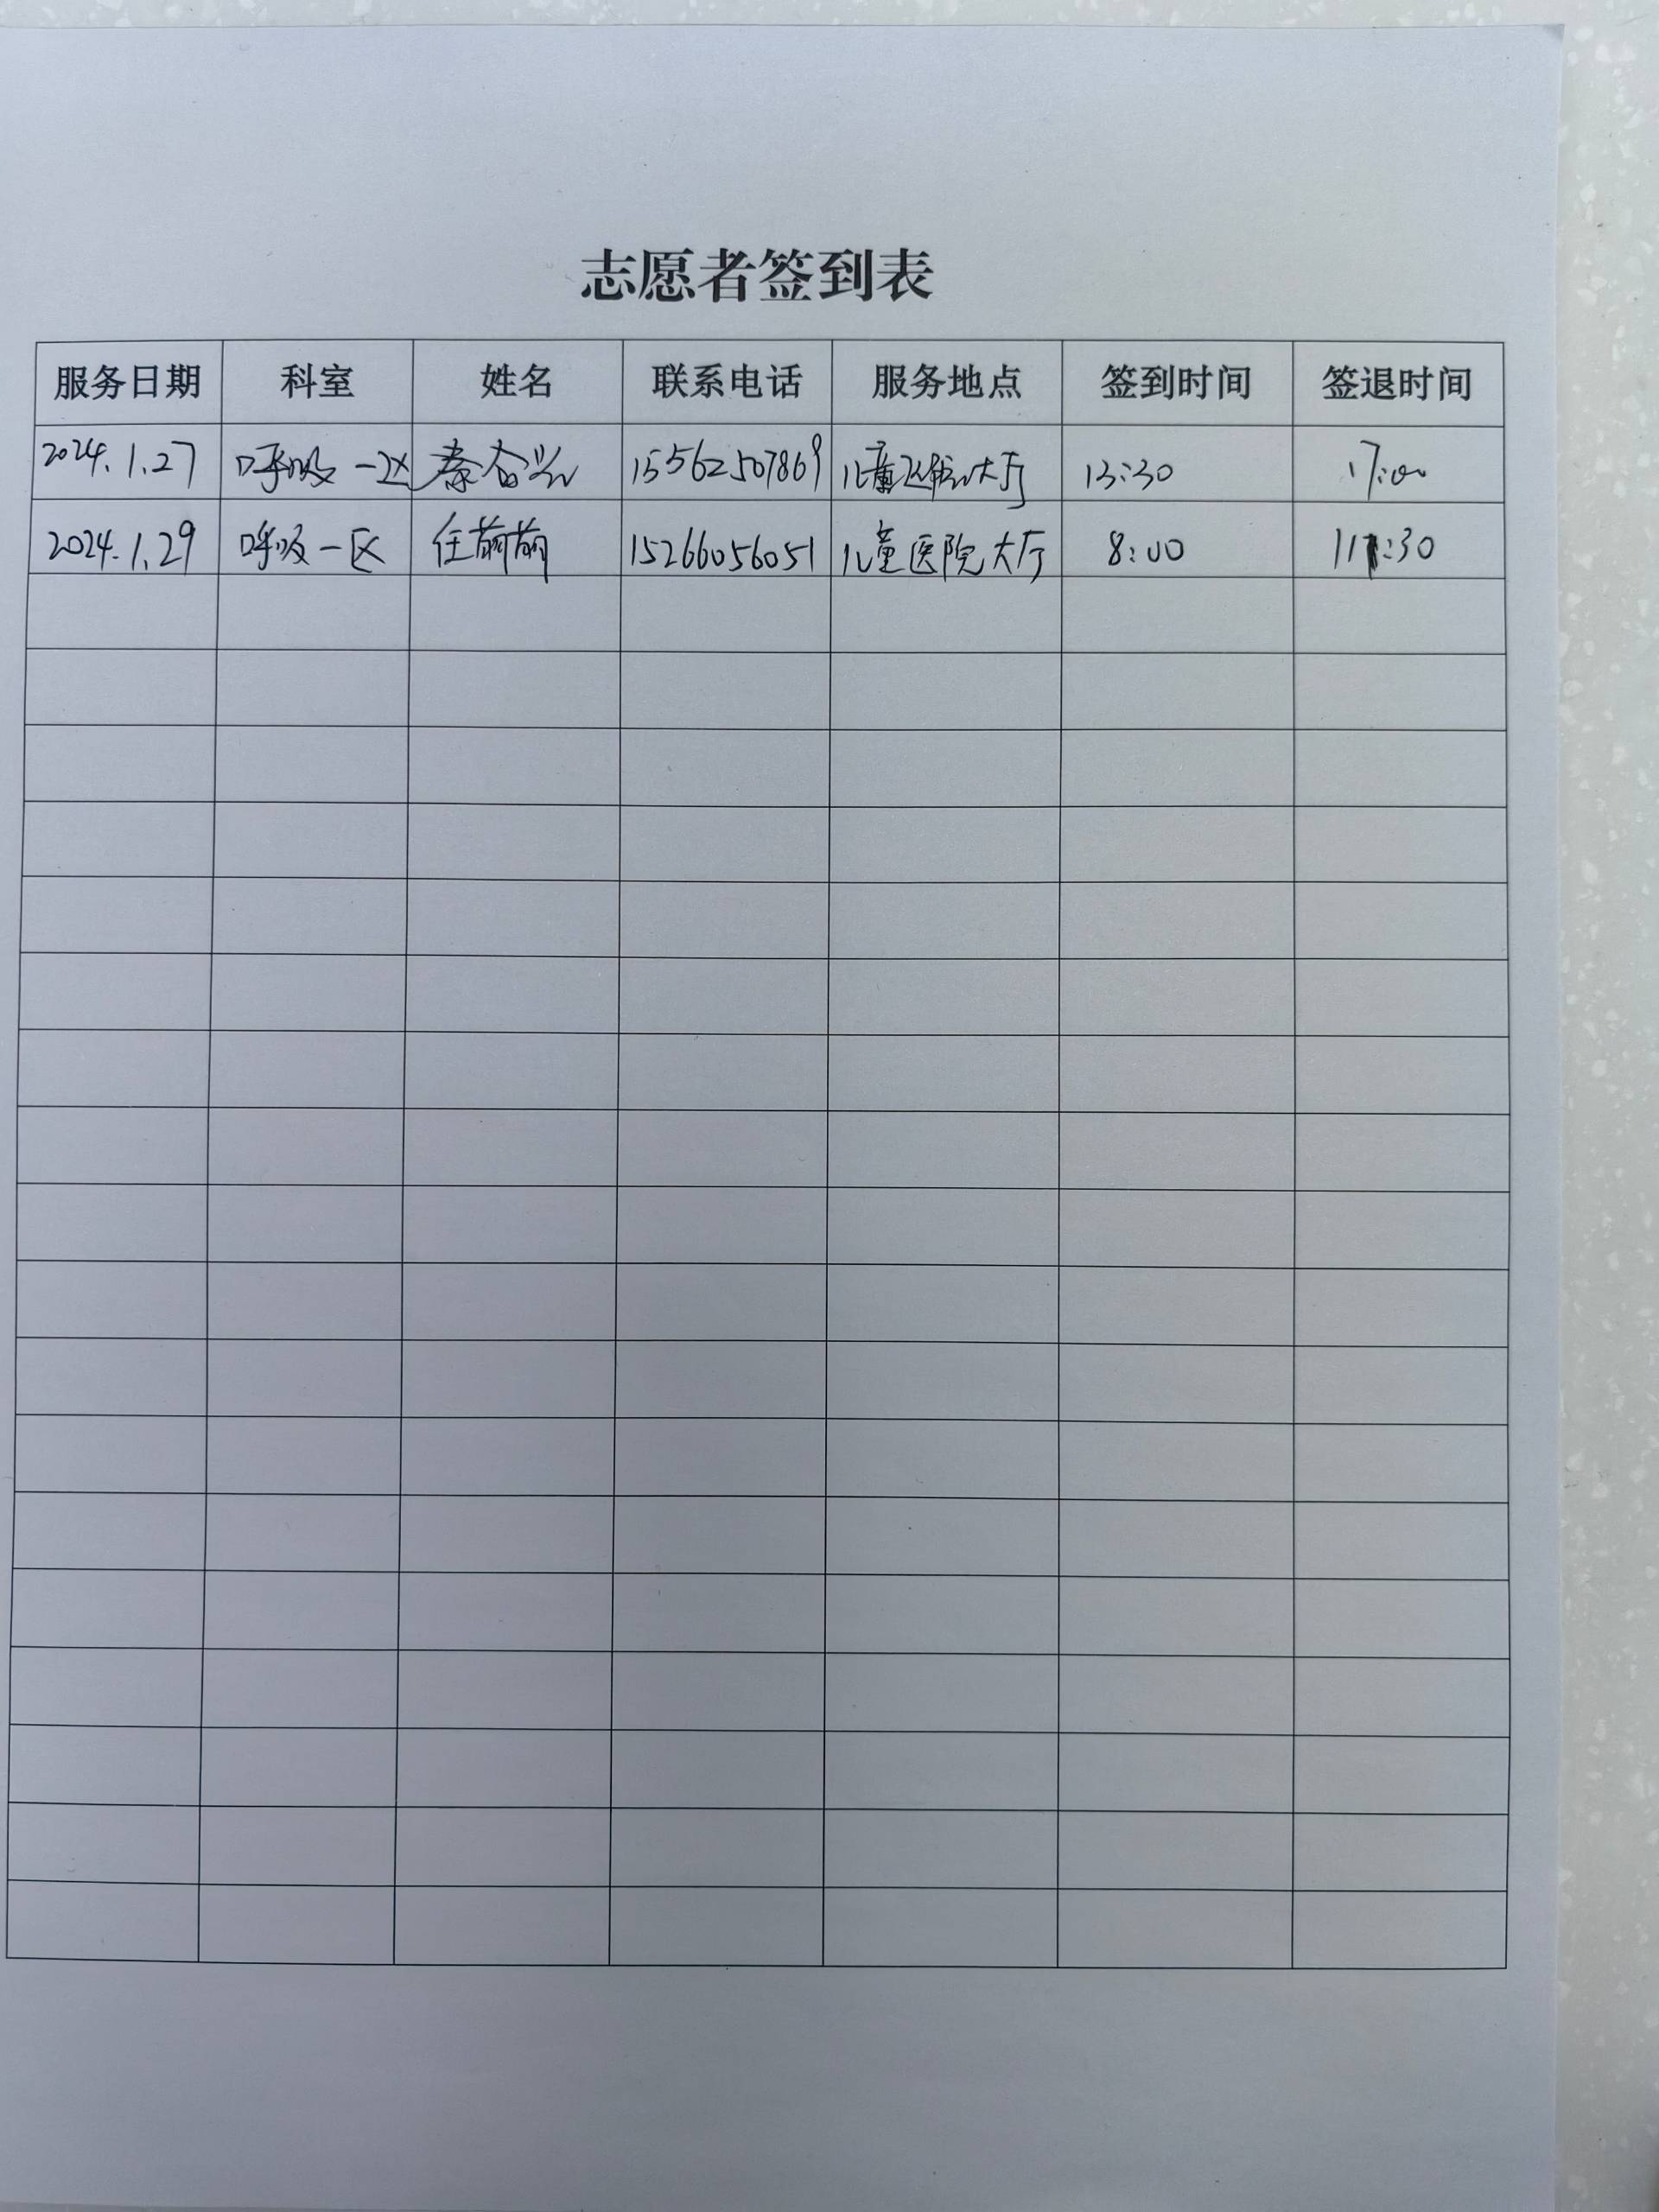 志愿者签到表
服务日期 科室 姓名 联系电话 服务地点 签到时间 签退时间
2024.1.27 呼吸一区 15562507869 儿童医院大厅 13:30 17:00
2024.1.29 呼吸一区 任萌萌 15266056051 儿童医院大厅 8:00 11:30